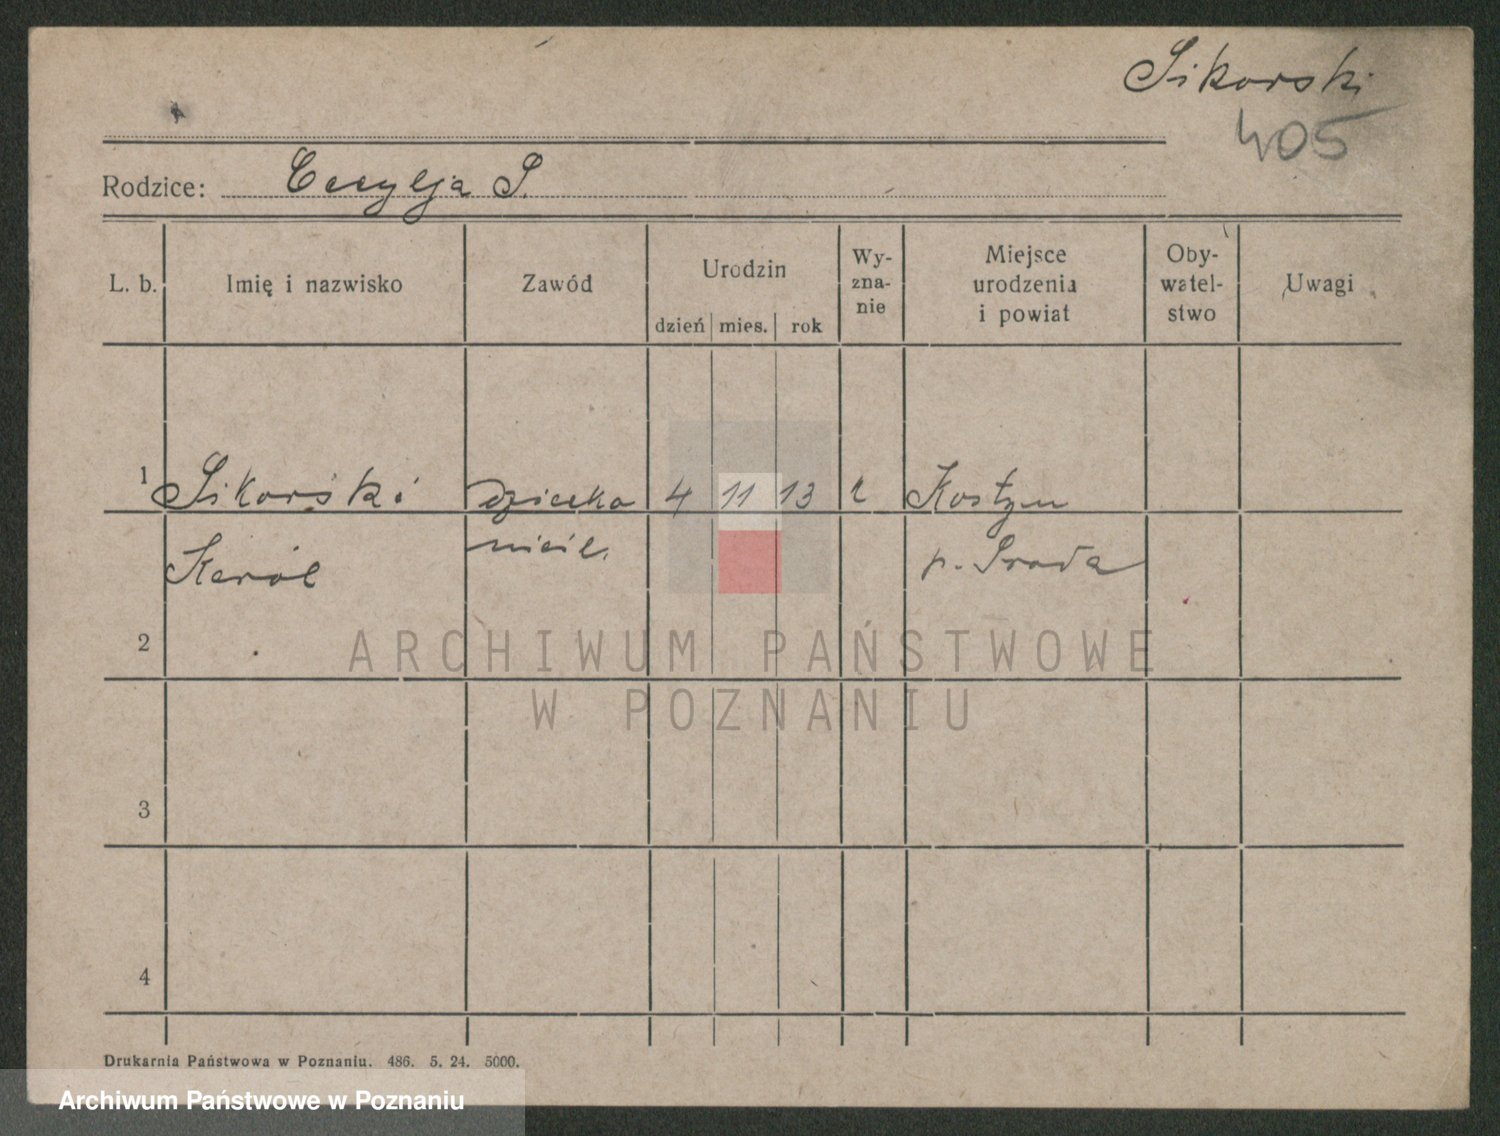 Sikorski
405
Rodzice: Cecylja S.
L. b. Imię i nazwisko Zawód Urodzin dzień mies. rok Wy-zna-nie Miejsce urodzenia i powiat Oby-watel-stwo Uwagi
1 Sikorski dziecko 4 11 13 Kostzyn
Karol nieśl. p. Sroda
2
3
4
Drukarnia Państwowa w Poznaniu. 486. 5. 24. 5000.
ARCHIWUM PAŃSTWOWE
W POZNANIU
Archiwum Państwowe w Poznaniu